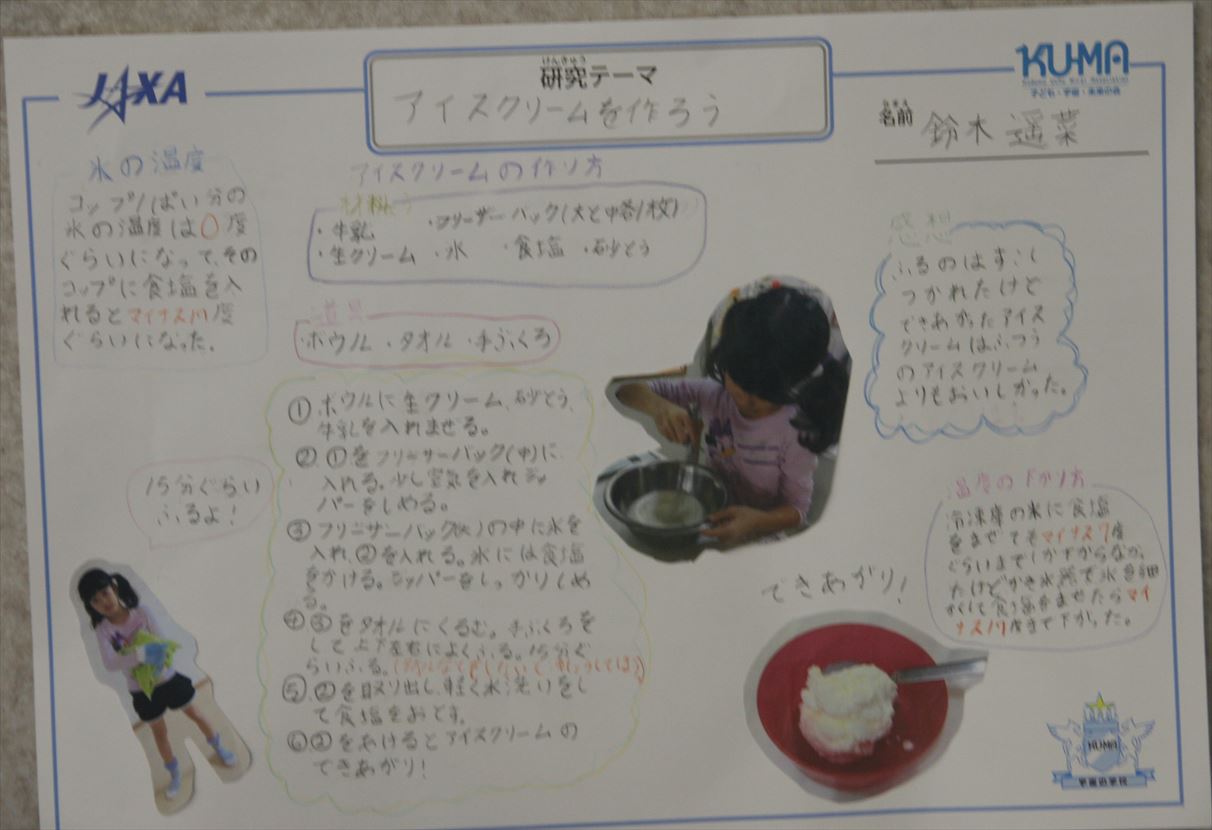 JAXA
けんきゅう
研究テーマ
アイスクリームを作ろう
KU-MA
子ども・宇宙・未来の会
なまえ
名前
鈴木遥菜
氷の温度
コップ1ぱい分の
氷の温度は0度
ぐらいになって、その
コップに食塩を入
れるとマイナス11度
ぐらいになった。
アイスクリームの作り方
材料
・牛乳
・フリーザーバック(大と中各1枚)
・生クリーム ・氷 ・食塩 ・砂とう
道具
・ボウル ・タオル ・手ぶくろ
① ボウルに生クリーム、砂とう、
牛乳を入れませる。
② ①をフリーザーバック(中)に
入れる。少し空気を入れジッ
パーをしめる。
③ フリーザーバック(大)の中に氷を
入れ、②を入れる。氷には食塩
をかける。ジッパーをしっかりしめ
る。
④ ③をタオルにくるむ。手ぶくろを
して上下左右によくふる。15分ぐ
らいふる。
⑤ ②を取り出し、軽く水洗いをし
て食塩をおとす。
⑥ ②をあけるとアイスクリームの
できあがり!
15分ぐらい
ふるよ!
感想
ふるのはすこし
つかれたけど
できあがったアイス
クリームはふつう
のアイスクリーム
よりもおいしかった。
温度の下がり方
冷凍庫の氷に食塩
をまぜてもマイナス7度
ぐらいまでしか下がらなか
ったけどかき氷器で氷を細
かくして食塩をませたらマイ
ナス11度まで下がった。
できあがり!
KU-MA
宇宙の学校